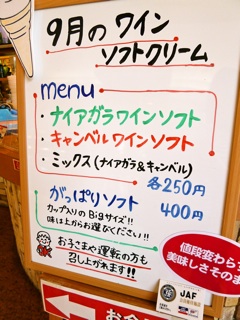 9月の ワイン
ソフトクリーム
menu
・ナイアガラワインソフト
・キャンベルワインソフト
・ミックス(ナイアガラ&キャンベル)
各250円
がっぱりソフト
カップ入りのBigサイズ!!
味は上からお選びください!!
400円
お子さまや運転の方も
召し上がれます!!
値段変わらず
美味しさそのま
JAF
お会